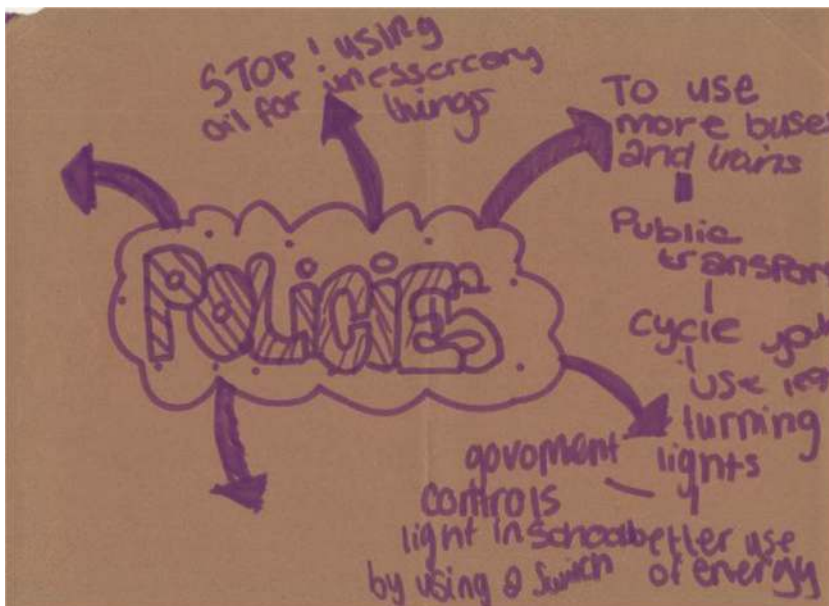 STOP! using
oil for unessercery
things
To use
more buses
and trains
Public
transport
cycle
use
turning
lights
better use
of energy
POLiCiES
govoment
controls
light in school
by using a switch